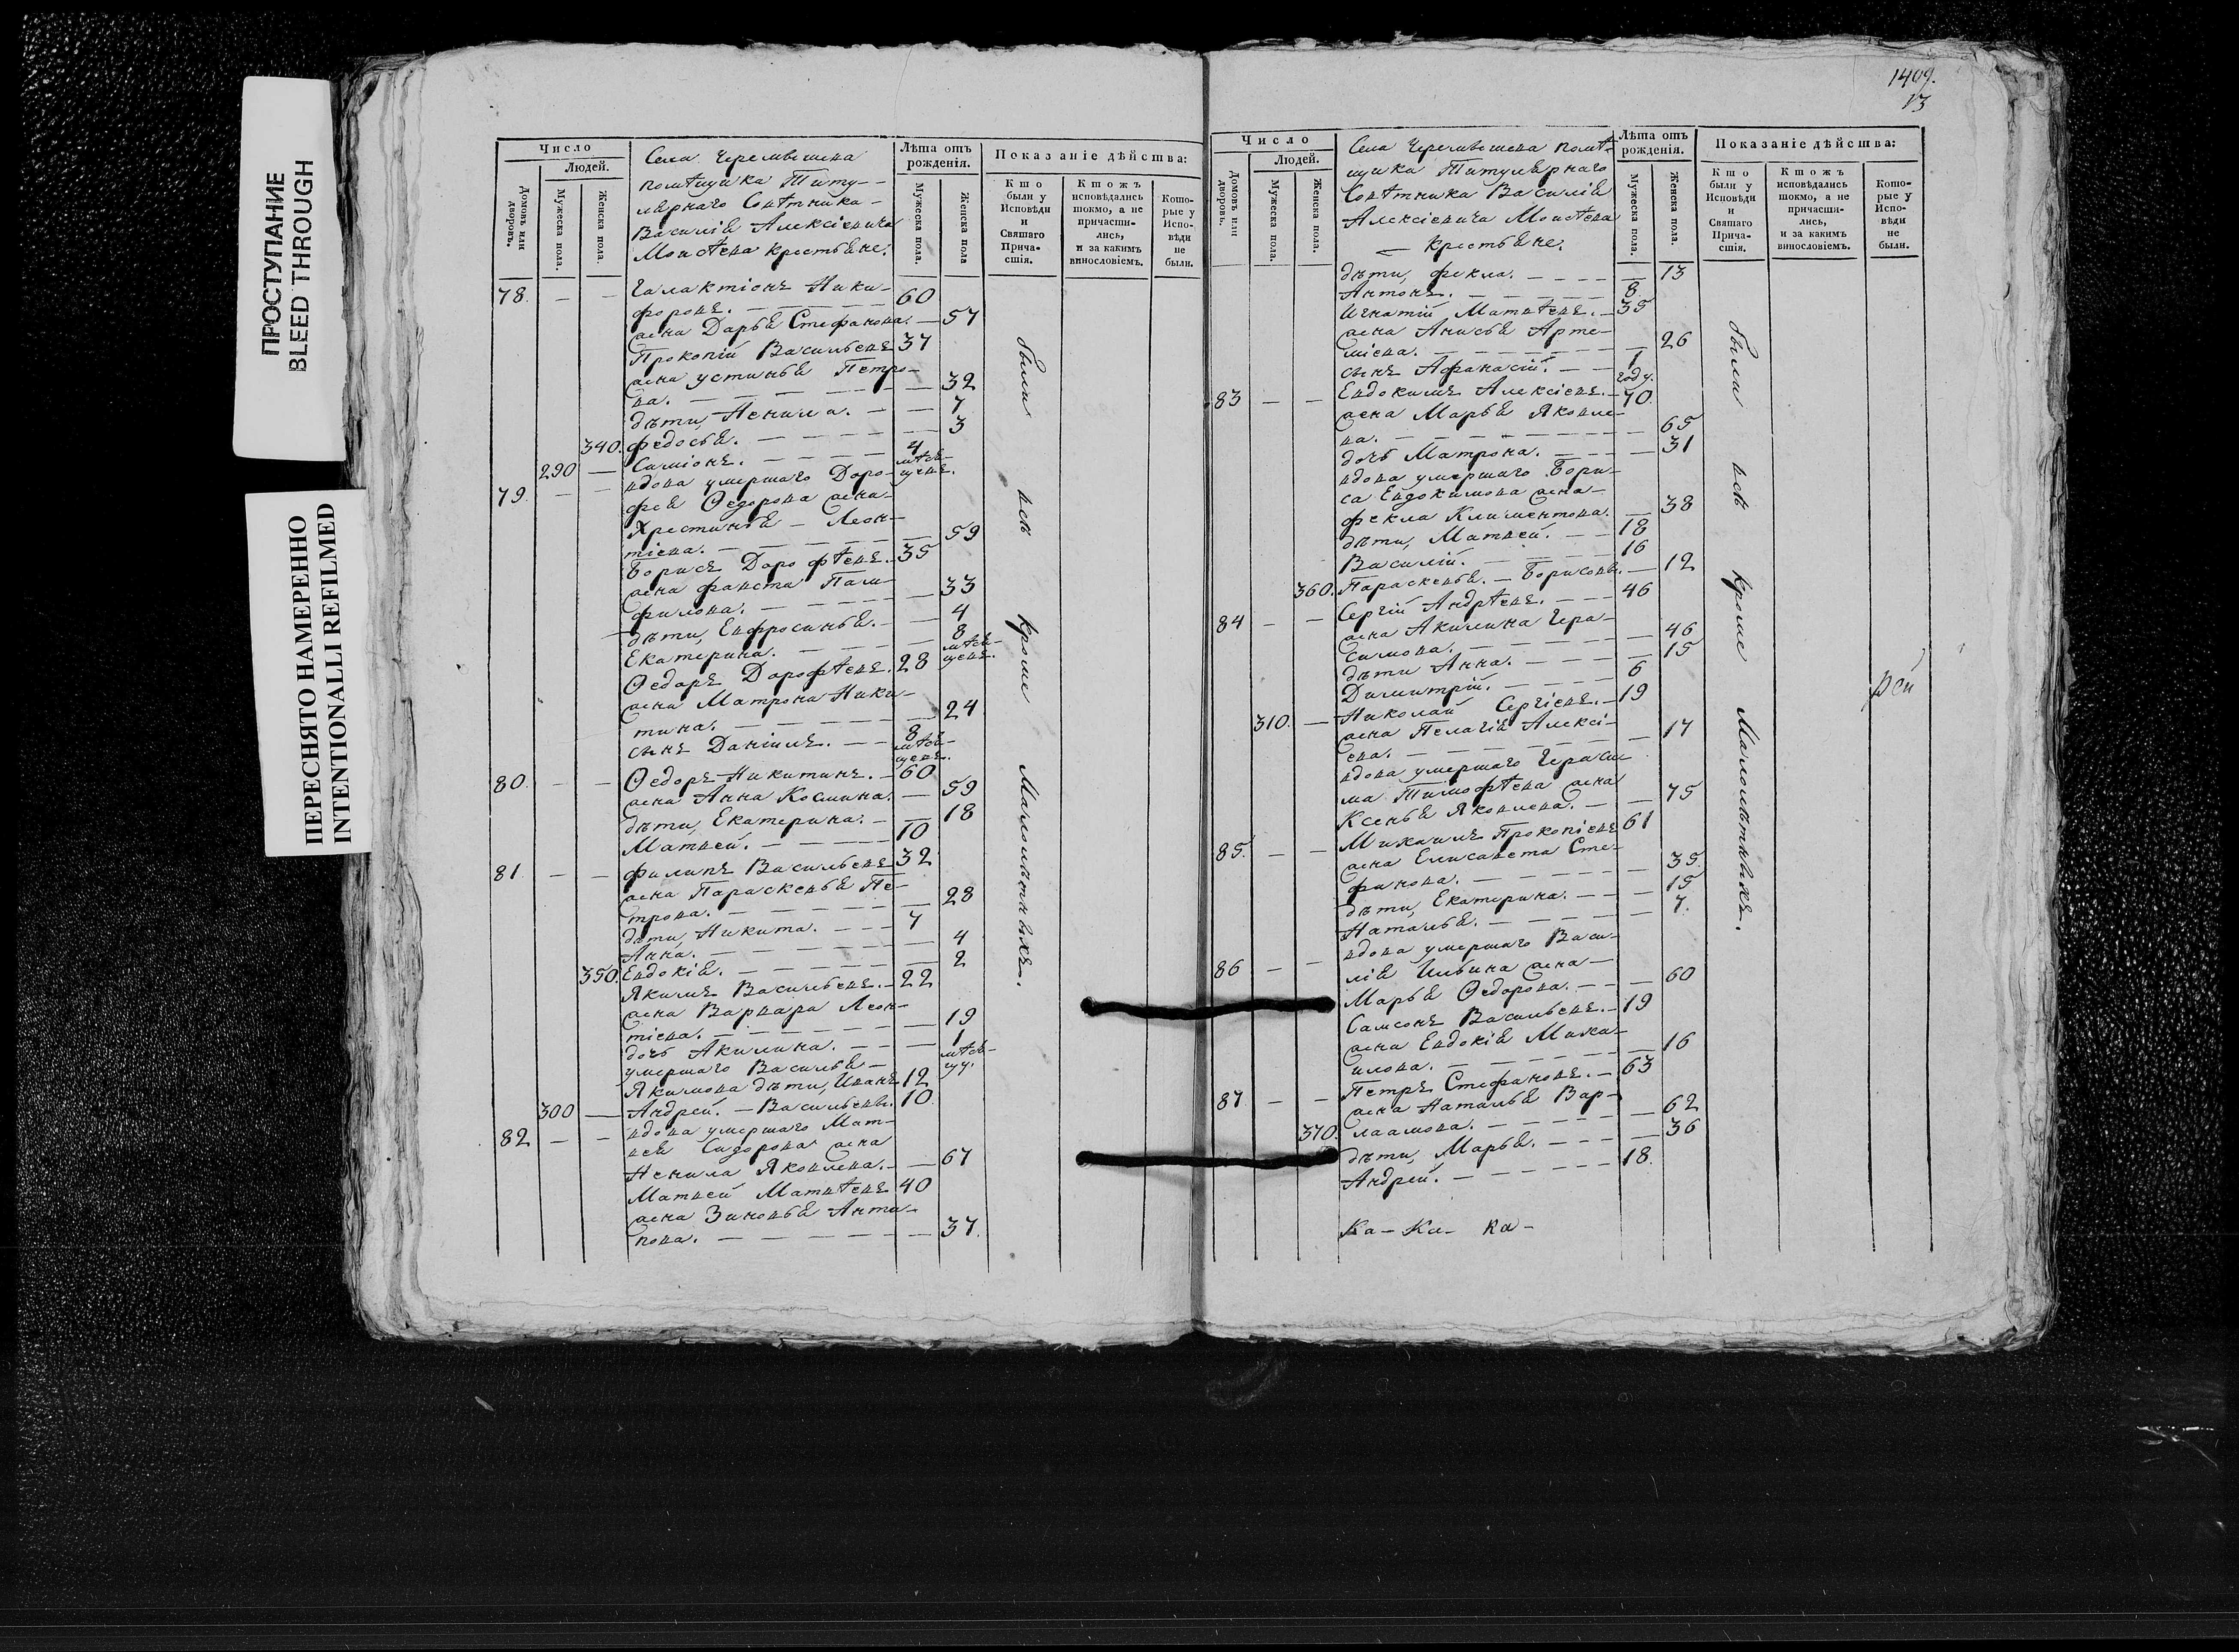 ПРОСТУПАНИЕ
BLEED THROUGH
ПЕРЕСНЯТО НАМЕРЕННО
INTENTIONALLI REFILMED
Число
Людей.
Домовъ или дворовъ.
Мужеска пола.
Женска пола.
Села Черемышева
помѣщика Титу-
лярнаго Совѣтника
Василія Алексіевича
Моисѣева крестьяне.
Лѣта отъ рожденія.
Мужеска пола.
Женска пола
Показаніе дѣйства:
Кто были у Исповѣди и Святаго Прича-стія.
Ктожъ исповѣдались токмо, а не причасти-лись, и за какимъ винословіемъ.
Кото-рые у Испо-вѣди не были.
78. — — Галактіонъ Ники-
форовъ. — 60
жена Дарья Стефанова. — 57
Прокопій Васильевъ 37
жена Устинья Петро-
ва. — 32
дѣти, Ненила. — 7
340. Федосья. — 3
290 — Симіонъ. — 4 мѣся-
цевъ.
79. — — вдова умершаго Доро-
фея Ѳедорова жена
Христинья — Леон-
тіева. — 59
Борисъ Дорофѣевъ. 35
жена Фавста Пам-
филова. — 33
дѣти, Евфросинья. — 4
Екатерина. — 8 мѣся-
цевъ.
Ѳедоръ Дорофѣевъ. 28
жена Матрона Ники-
тина. — 24
сынъ Даніилъ. — 8 мѣся-
цевъ.
80. — — Ѳедоръ Никитинъ. — 60
жена Анна Космина. — 59
дѣти, Екатерина. — 18
Матвей. — 10
81. — — Филипъ Васильевъ 32
жена Параскевья Пе-
трова. — 28
дѣти, Никита. — 7
Анна. — 4
350. Евдокія. — 2
Якимъ Васильевъ. — 22
жена Варвара Леон-
тіева. — 19
дочь Акилина. — 1 мѣся-
цу.
умершаго Василья —
Якимова дѣти, Иванъ 12
300 — Андрей. — Васильевы. 10.
82. — — вдова умершаго Мат-
вея Сидорова жена
Ненила Яковлева. — 67
Матвей Матвѣевъ 40
жена Зиновья Анти-
пова. — 37.
были всѣ кроме Малолѣтныхъ.
1409.
13
Число
Людей.
Домовъ или дворовъ.
Мужеска пола.
Женска пола.
Села Черемышева помѣ-
щика Титулярнаго
Совѣтника Василія
Алексіевича Моисѣева
— крестьяне.
Лѣта отъ рожденія.
Мужеска пола.
Женска пола.
Показаніе дѣйства:
Кто были у Исповѣди и Святаго Прича-стія.
Ктожъ исповѣдались токмо, а не причасти-лись, и за какимъ винословіемъ.
Кото-рые у Испо-вѣди не были.
дѣти, Фекла. — 13
Антонъ. — 8.
Игнатій Матвѣевъ. — 35
жена Анисья Арте-
міева. — 26
сынъ Афанасій. — 1 году.
83 — — Евдокимъ Алексіевъ. — 70.
жена Марья Яковле-
ва. — 65
дочь Матрона. — 31
вдова умершаго Бори-
са Евдокимова жена —
Фекла Климентова. — 38
дѣти, Матвей. — 18
Василій. — 16
360. Параскевья. — Борисовы. — 12
84 — — Сергій Андрѣевъ. — 46
жена Акилина Гера-
симова. — 46
дѣти Анна. — 15
Димитрій. — 6
310. — Николай Сергіевъ. — 19
жена Пелагія Алексі-
ева. — 17
вдова умершаго Гераси-
ма Тимофѣева жена
Ксенья Яковлева. — 75
85. — — Михаилъ Прокопіевъ 61
жена Елисавета Сте-
фанова. — 35.
дѣти, Екатерина. — 15
Наталья. — 7.
86 — — вдова умершаго Васи-
лія Ильина жена —
Марья Ѳедорова. — 60
Самсонъ Васильевъ. — 19
жена Евдокія Миха-
илова. — 16
87 — — Петръ Стефановъ. — 63
жена Наталья Вар-
370. лаамова. — 62
дѣти, Марья. — 36
Андрей. — 18.
были всѣ кроме Малолѣтныхъ.
рей
Ка — Ка — Ка —